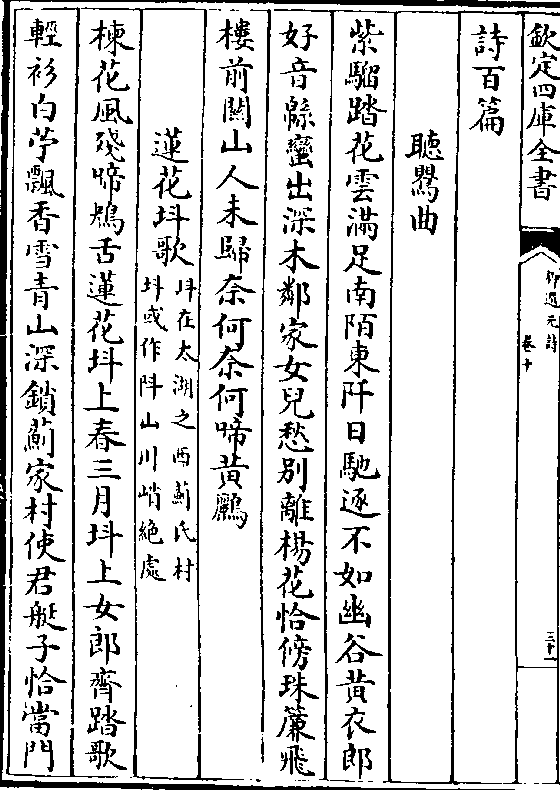 欽定四庫全書
御選元詩
卷十
三十一
詩百篇
聽鸎曲
紫騮踏花雲滿足南陌東阡日馳逐不如幽谷黃衣郎
好音緜蠻出深木鄰家女兒愁別離楊花恰傍珠簾飛
樓前關山人未歸奈何奈何啼黃鸝
蓮花㘰歌
㘰在太湖之西薊氏村
㘰或作阧山川峭絶處
楝花風殘啼鴂舌蓮花㘰上春三月㘰上女郎齊踏歌
輕衫白苧飄香雪青山深鎖薊家村使君艇子恰當門